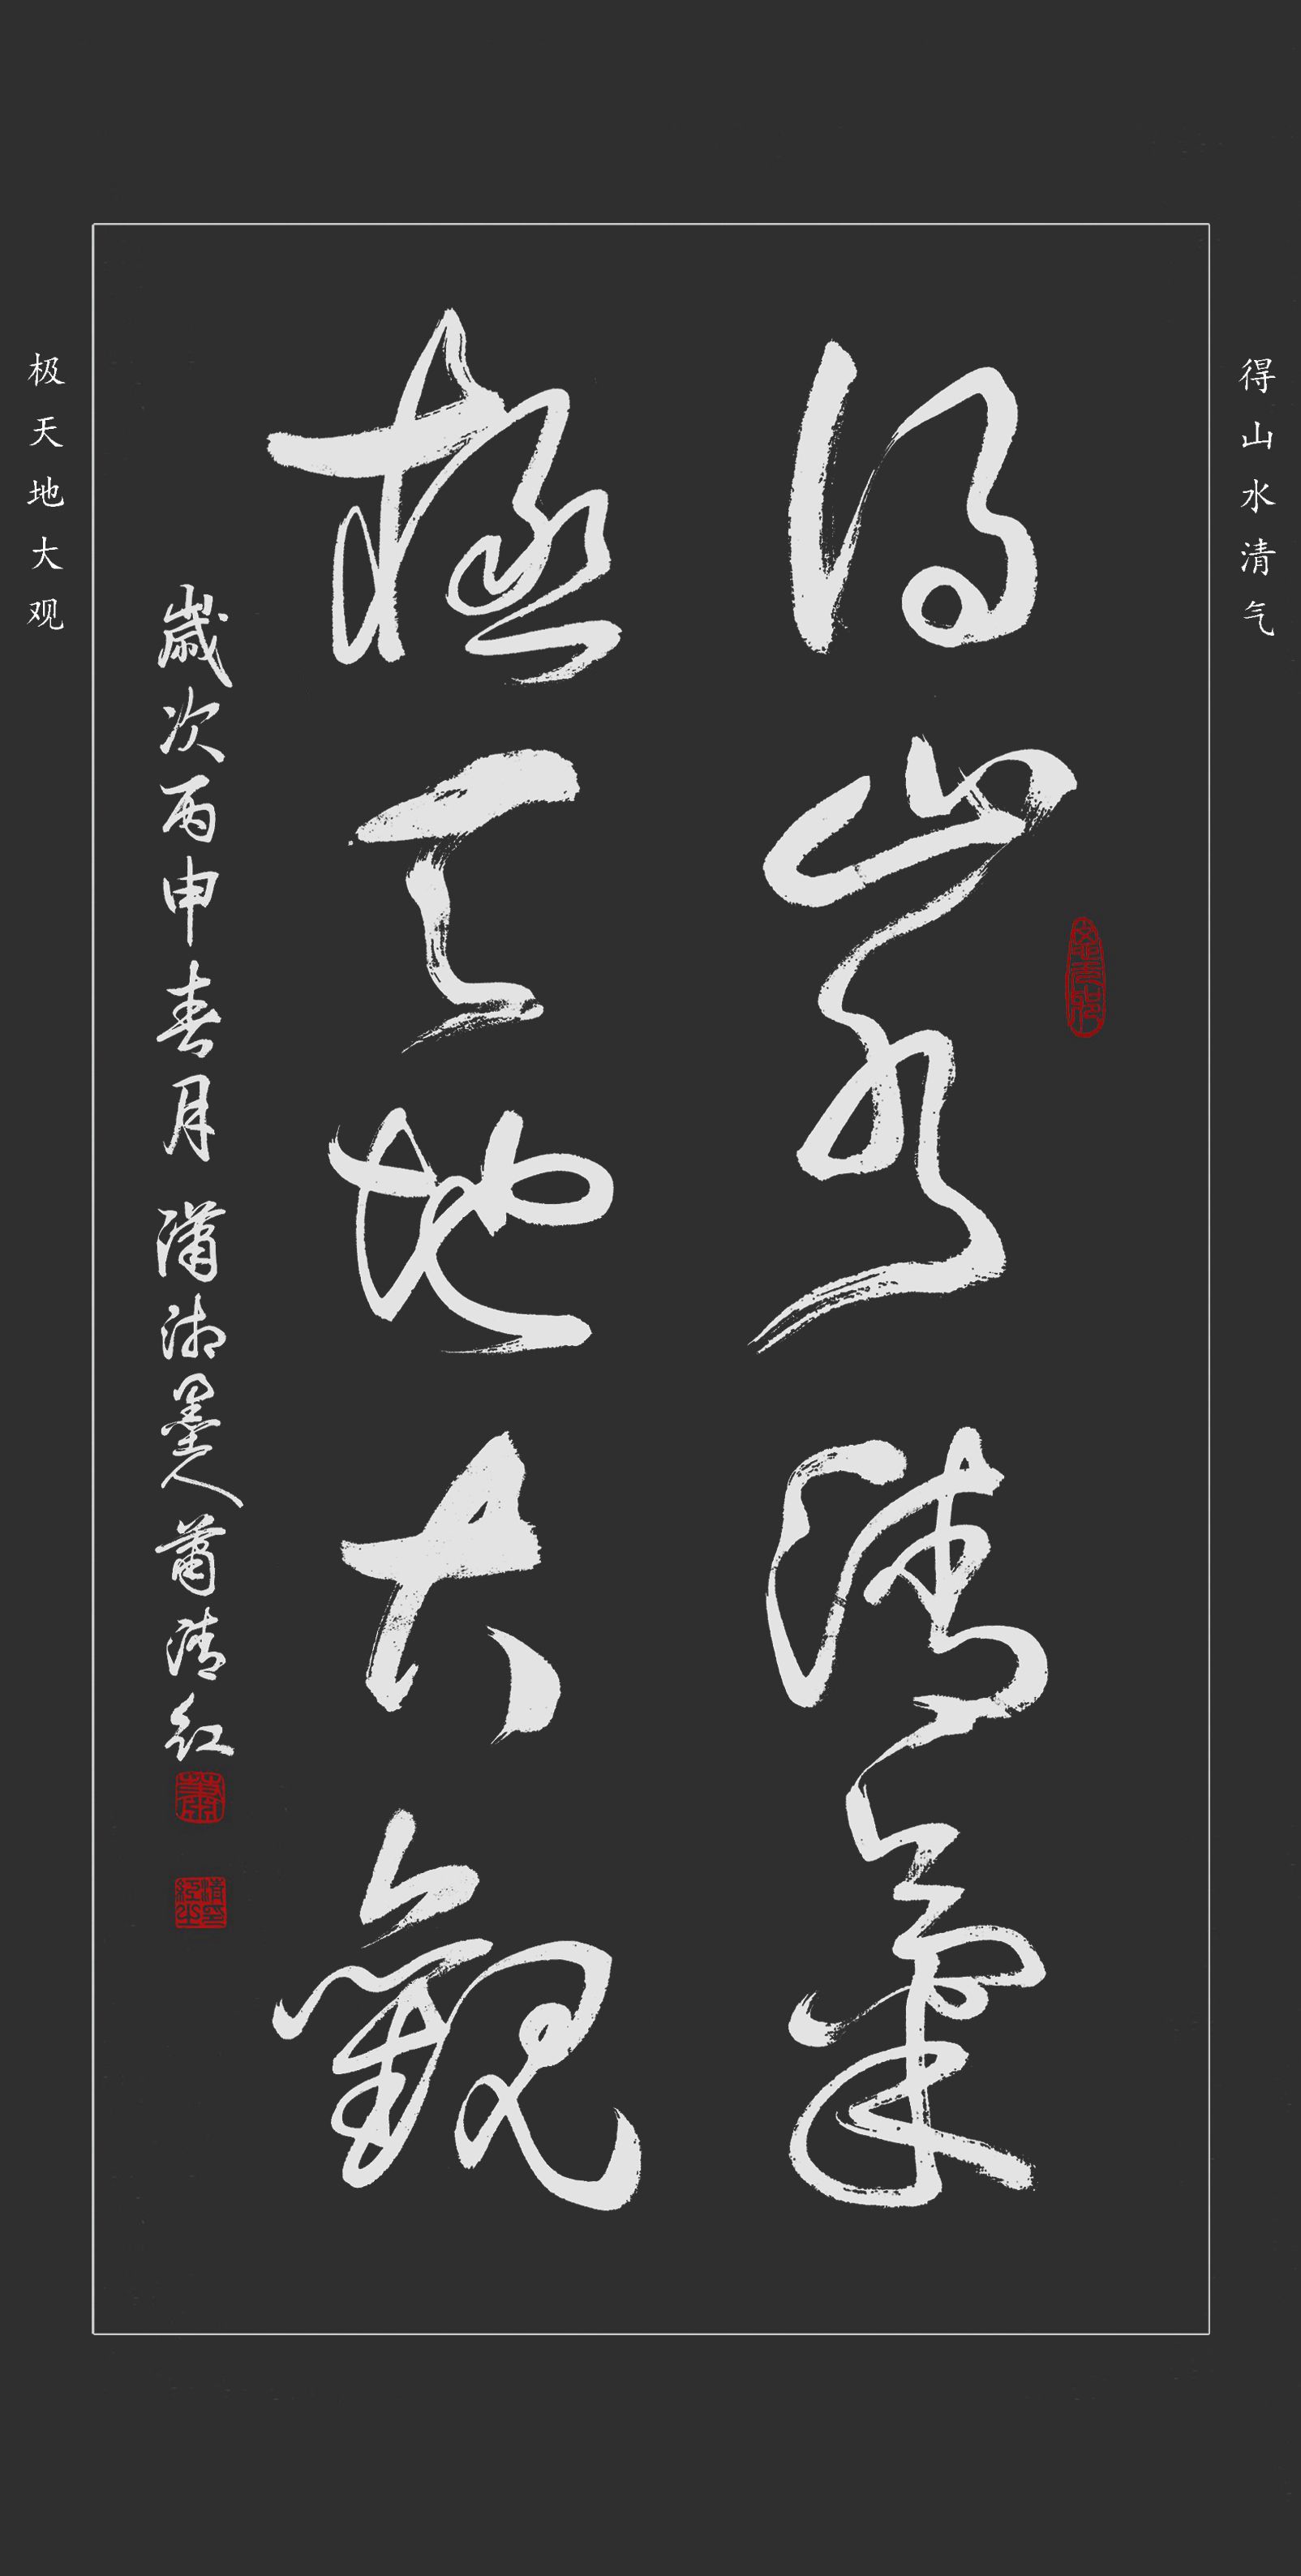 得山水清气
得山水清氣
極天地大觀
歲次丙申春月 瀟湘墨人蕭清红
极天地大观